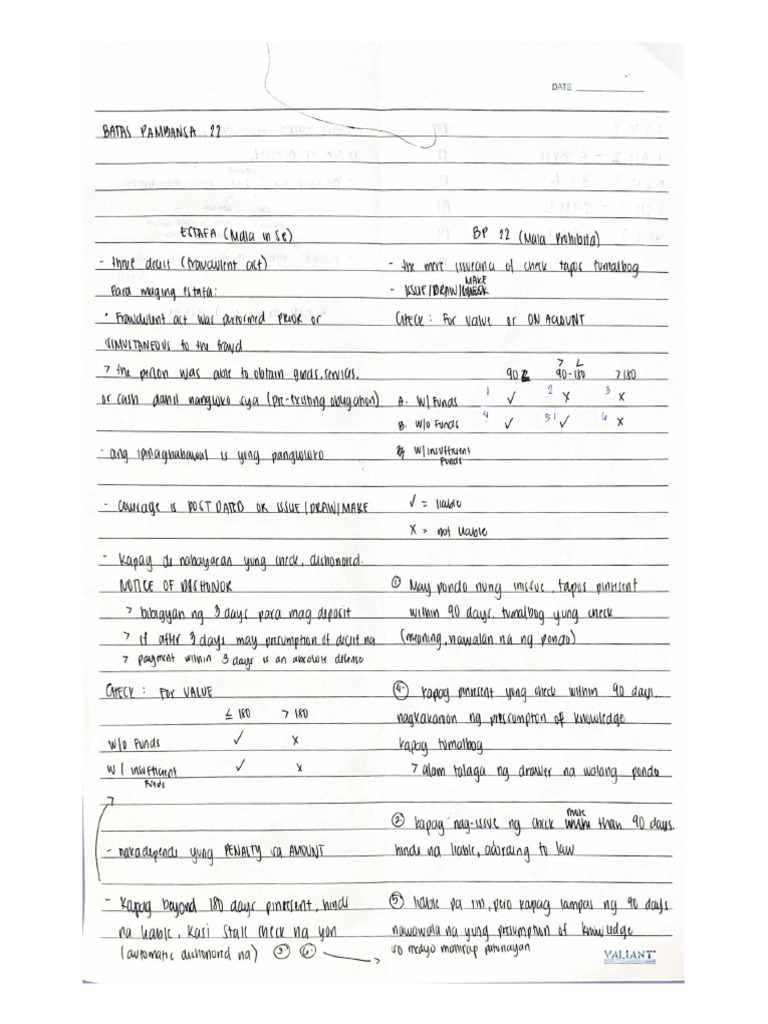 DATE
BATAS PAMBANSA 22
ESTAFA (Mala in se)
- thru deceit (fraudulent act)
Para maging estafa:
• Fraudulent act was performed PRIOR or
SIMULTANEOUS to the fraud
> the person was able to obtain goods, services,
or cash dahil nangloko sya (pre-existing obligation)
- ang ipinagbabawal is yung pangloloko
- coverage is POST DATED OR ISSUE/DRAW/MAKE
- Kapag di nabayaran yung check, dishonored.
NOTICE OF DISHONOR
> bibigyan ng 3 days para mag deposit
> if after 3 days may presumption of deceit na
> payment within 3 days is an absolute defense
CHECK: FOR VALUE
≤ 180 > 180
w/o Funds ✓ x
w/ insufficient ✓ x
Funds
- nakadepende yung PENALTY sa AMOUNT
- Kapag beyond 180 days pinresent, hindi
na liable, kasi stale check na yon
(automatic dishonored na) ③ ⑥
BP 22 (Mala Prohibita)
- the mere issuance of check tapos tumalbog
MAKE
- ISSUE/DRAW/CHECK
CHECK: FOR VALUE or ON ACCOUNT
> <
90 ≤ 90-180 >180
1 2 3
A. W/ Funds ✓ x x
4 5 6
B. w/o Funds ✓ ✓ x
w/ insufficient
Funds
✓ = liable
x = not liable
① May pondo nung inissue, tapos pinresent
within 90 days. tumalbog yung check
(meaning, nawalan na ng pondo)
④ Kapag pinresent yung check within 90 days,
nagkakaroon ng presumption of knowledge
kapag tumalbog
> alam talaga ng drawer na walang pondo
more
② kapag nag-issue ng check than 90 days,
hindi na liable, according to law
⑤ liable pa rin, pero kapag lampas ng 90 days
nawawala na yung presumption of knowledge
so medyo mahirap patunayan
VALIANT